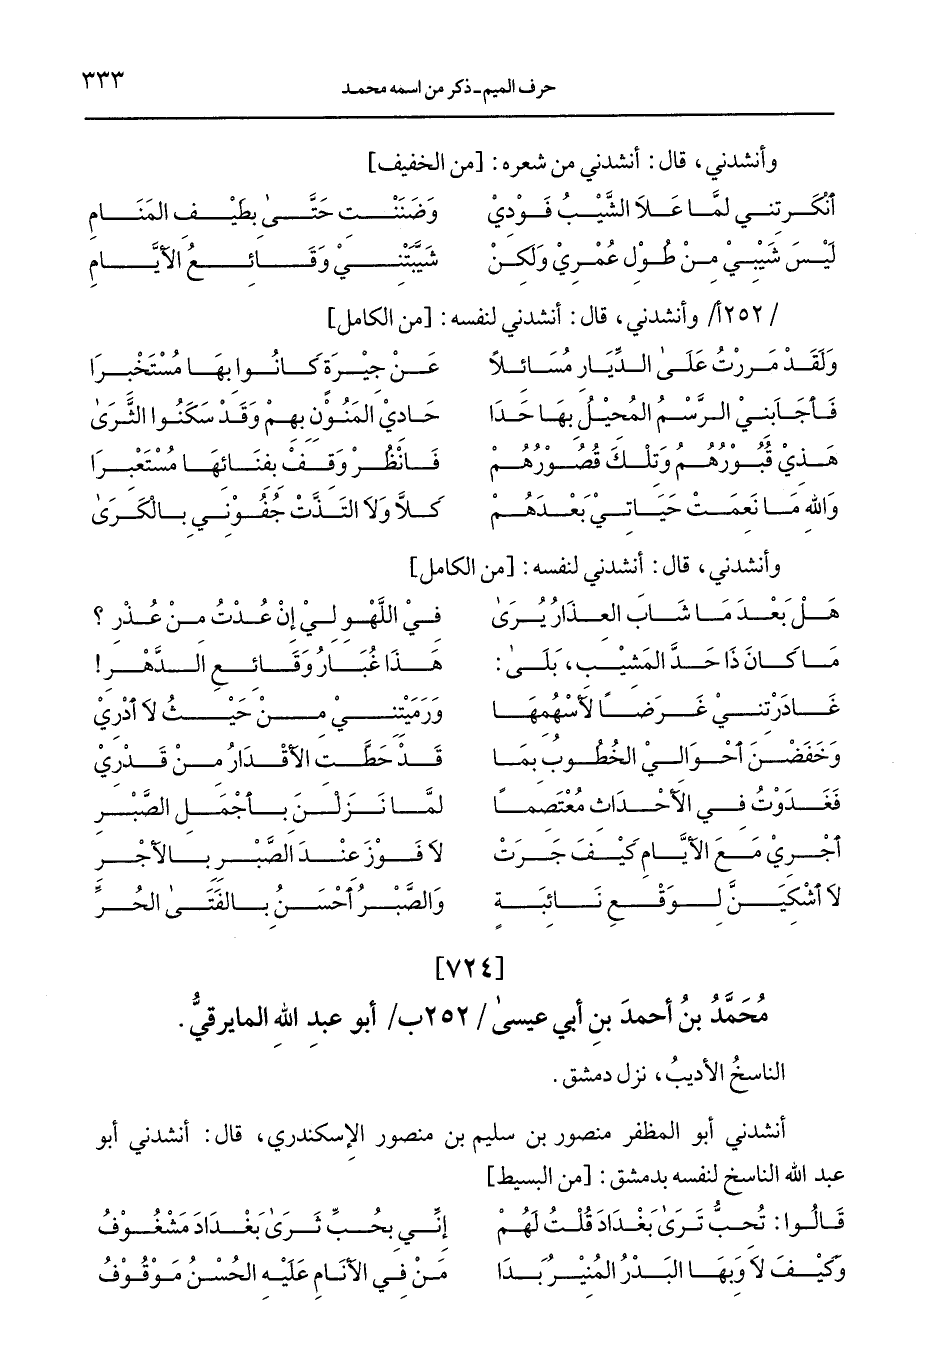 حرف الميم ـ ذكر من اسمه محمد ٣٣٣
وأنشدني، قال: أنشدني من شعره: [من الخفيف]
أَنْكَرتني لمَّا عَلاَ الشَّيْبُ فَوْدِيْ وَضَنَنْتِ حَتَّىٰ بِطَيْفِ المَنَامِ
لَيْسَ شَيْبِيْ مِنْ طُولِ عُمْرِيْ وَلَكِنْ شَيَّبَتْنِيْ وَقَائِعُ الأَيَّامِ
/٢٥٢أ/ وأنشدني، قال: أنشدني لنفسه: [من الكامل]
وَلَقَدْ مَررْتُ عَلَىٰ الدِّيَارِ مُسَائِلاً عَنْ جِيْرَةٍ كَانُوا بِهَا مُسْتَخْبِرَا
فَأَجَابَنِيْ الرَّسْمُ المُحِيْلُ بِهَا حَدَا حَادِيْ المَنُوْنِ بِهِمْ وَقَدْ سَكَنُوا الثَّرَىٰ
هَذِي قُبُورُهُمُ وَتِلْكَ قُصُوْرُهُمْ فَانْظُرْ وَقِفْ بِفَنَائِهَا مُسْتَعْبِرَا
وَاللهِ مَا نَعِمَتْ حَيَاتِيْ بَعْدَهُمْ كَلاَّ وَلاَ التَذَّتْ جُفُوْنِي بِالْكَرَىٰ
وأنشدني، قال: أنشدني لنفسه: [من الكامل]
هَلْ بَعْدَ مَا شَابَ العِذَارُ يُرَىٰ فِيْ اللَّهْوِ لِيْ إِنْ عُدْتُ مِنْ عُذْرِ؟
مَا كَانَ ذَا حَدَّ المَشِيْبِ، بَلَىٰ: هَذَا غُبَارُ وَقَائِعِ الدَّهْرِ!
غَادَرْتنِيْ غَرَضاً لأَسْهُمِهَا وَرَمَيْتِنِيْ مِنْ حَيْثُ لاَ أَدْرِيْ
وَخَفَضْنَ أَحْوَالِيْ الخُطُوبِ بِمَا قَدْ حَطَّتِ الأَقْدَارُ مِنْ قَدْرِيْ
فَغَدَوْتُ فِي الأَحْدَاثِ مُعْتَصِماً لَمَّا نَزَلْنَ بِأَجْمَلِ الصَّبْرِ
أَجْرِيْ مَعَ الأَيَّامِ كَيْفَ جَرَتْ لاَ فَوْزَ عِنْدَ الصَّبْرِ بِالأَجْرِ
لاَ أَشْكِيَنَّ لِوَقْعِ نَائِبَةٍ وَالصَّبْرُ أَحْسَنُ بِالفَتَىٰ الحُرِّ
[٧٢٤]
مُحَمَّدُ بنُ أحمدَ بنِ أبي عيسىٰ /٢٥٢ب/ أبو عبدِ اللهِ المايرقيُّ.
الناسخُ الأديبُ، نزل دمشق.
أنشدني أبو المظفر منصور بن سليم بن منصور الإسكندري، قال: أنشدني أبو
عبد الله الناسخ لنفسه بدمشق: [من البسيط]
قَالُوا: تُحبُّ تَرَىٰ بَغْدَادَ قُلْتُ لَهُمْ إِنِّي بِحُبِّ ثَرَىٰ بَغْدَادَ مَشْغُوفُ
وَكَيْفَ لاَ وَبِهَا البَدْرُ المُنِيْرُ بَدَا مَنْ فِي الأَنَامِ عَلَيْهِ الحُسْنُ مَوْقُوْفُ